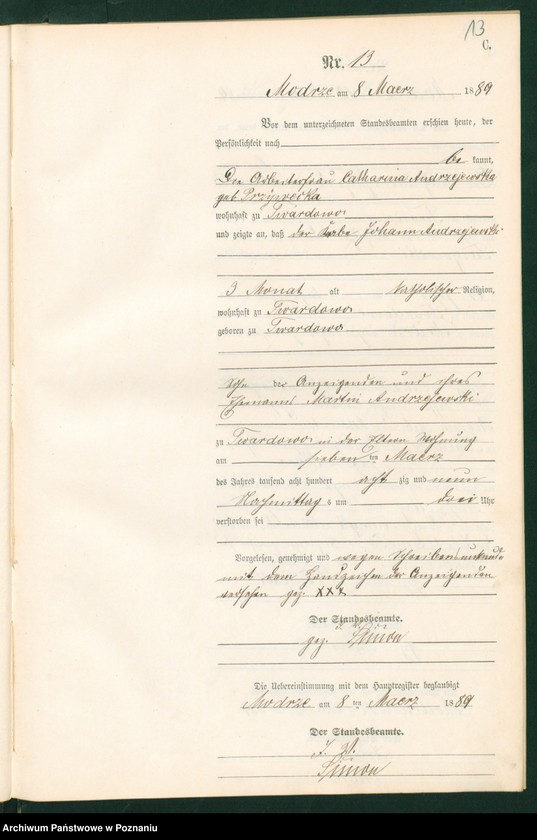 13
C.
Nr. 13
Modrze am 8 Maerz 1889
Vor dem unterzeichneten Standesbeamten erschien heute, der
Persönlichkeit nach
be kannt,
Die Arbeiterfrau Catharina Andrzejewska
geb
wohnhaft zu Twardowo
und zeigte an, daß der Johann Andrzejewski
3 Monat alt katholischer Religion,
wohnhaft zu Twardowo
geboren zu Twardowo
Sohn der Anzeigenden und ihres
Ehemanns Martin Andrzejewski
zu Twardowo in der Eltern Wohnung
am sieben ten Maerz
des Jahres tausend acht hundert acht zig und neun
Nachmittag s um drei Uhr
verstorben sei
Vorgelesen, genehmigt und wegen Schreibensunkunde
mit dem Handzeichen der Anzeigenden
versehen gez. XXX
Der Standesbeamte.
gez. Simon
Die Uebereinstimmung mit dem Hauptregister beglaubigt
Modrze am 8 ten Maerz 1889
Der Standesbeamte.
J. V.
Simon
Archiwum Państwowe w Poznaniu